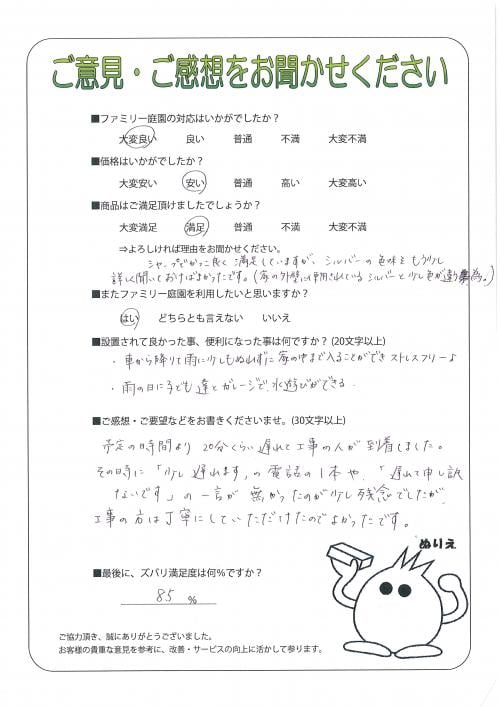 ご意見・ご感想をお聞かせください
■ファミリー庭園の対応はいかがでしたか?
大変良い 良い 普通 不満 大変不満
■価格はいかがでしたか?
大変安い 安い 普通 高い 大変高い
■商品はご満足頂けましたでしょうか?
大変満足 満足 普通 不満 大変不満
⇒よろしければ理由をお聞かせください。
シャープでかっこ良く満足していますが、シルバーの色味をもう少し
詳しく聞いておけばよかったです。(家の外壁に使用されているシルバーと少し色が違う為。)
■またファミリー庭園を利用したいと思いますか?
はい どちらとも言えない いいえ
■設置されて良かった事、便利になった事は何ですか? (20文字以上)
・車から降りて雨に少しもぬれずに家の中まで入ることができストレスフリーよ
・雨の日に子ども達とガレージで水遊びができる。
■ご感想・ご要望などをお書きくださいませ。(30文字以上)
予定の時間より20分くらい遅れて工事の人が到着しました。
その時に「少し遅れます」の電話の1本や、「遅れて申し訳
ないです」の一言が無かったのが少し残念でしたが、
工事の方は丁寧にしていただけたのでよかったです。
ぬりえ
■最後に、ズバリ満足度は何%ですか?
85 %
ご協力頂き、誠にありがとうございました。
お客様の貴重な意見を参考に、改善・サービスの向上に活かして参ります。